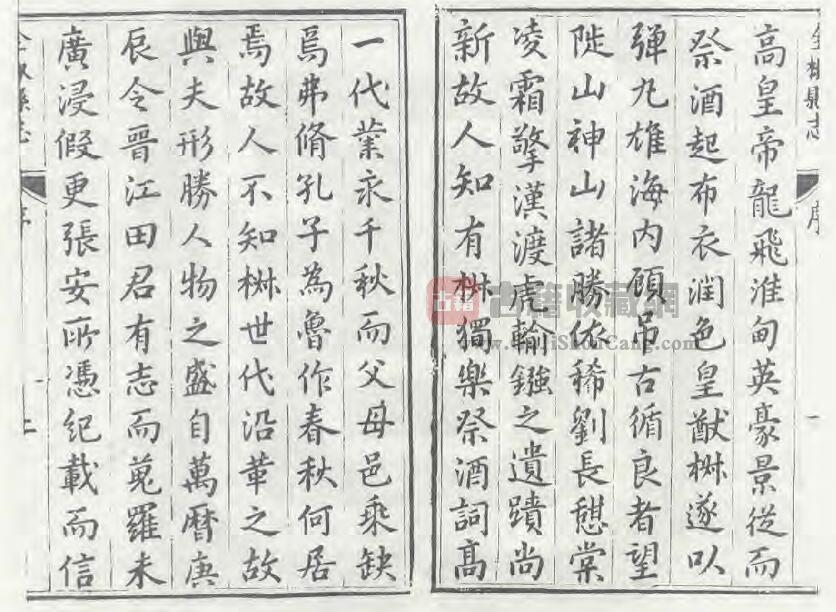 全椒縣志 序 一
高皇帝龍飛淮甸英豪景從而
祭酒起布衣潤色皇猷椒遂以
彈丸雄海内顧吊古循良者望
陡山神山諸勝依稀劉長憇棠
凌霜擎漢渡虎輸鏹之遺蹟尚
新故人知有椒獨樂祭酒詞高
一代業永千秋而父母邑乘缺
焉弗脩孔子為魯作春秋何居
焉故人不知椒世代沿革之故
與夫形勝人物之盛自萬曆庚
辰令晉江田君有志而蒐羅未
廣浸假更張安所憑紀載而信
全椒縣志 序
古籍
古籍收藏網
www.GuJiShouCang.com